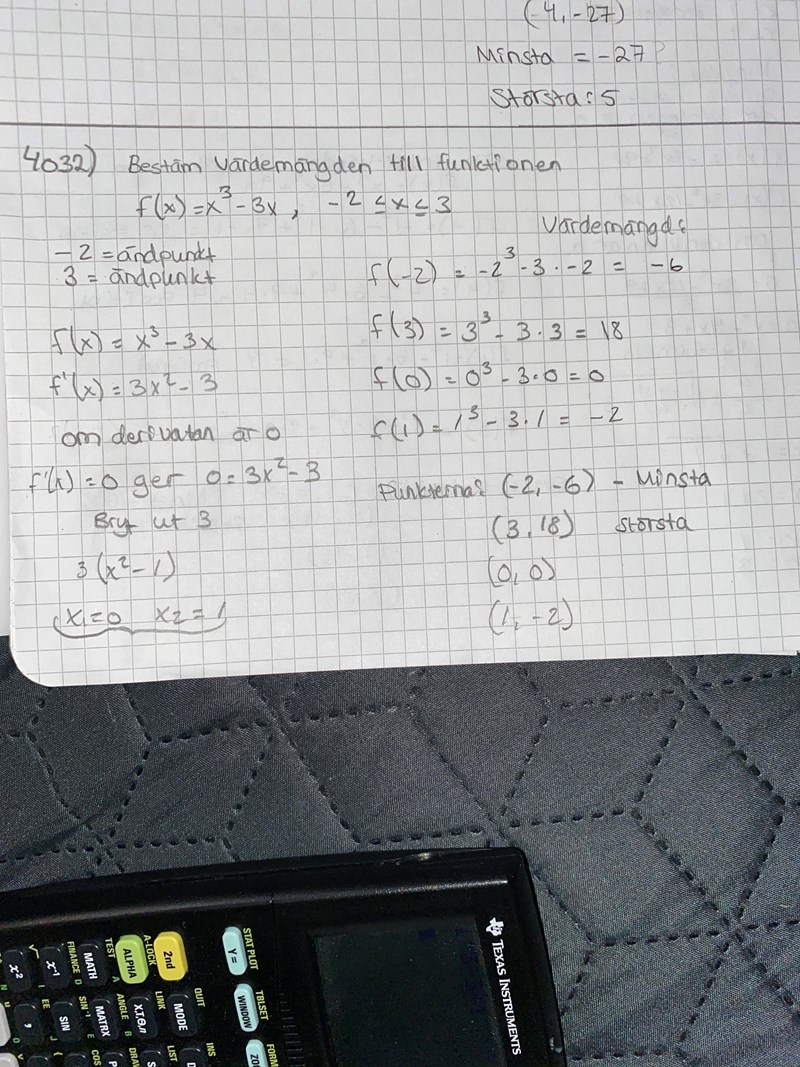 (-4, -27)
Minsta = -27
Största: 5
4032) Bestäm värdemängden till funktionen
f(x) = x³ - 3x, -2 ≤ x ≤ 3
-2 = ändpunkt
3 = ändpunkt
f(x) = x³ - 3x
f'(x) = 3x² - 3
om derivatan är 0
f'(x) = 0 ger 0 = 3x² - 3
Bryt ut 3
3(x² - 1)
x₁ = 0 x₂ = 1
Värdemängd:
f(-2) = -2³ - 3 · -2 = -6
f(3) = 3³ - 3 · 3 = 18
f(0) = 0³ - 3 · 0 = 0
f(1) = 1³ - 3 · 1 = -2
Punkterna: (-2, -6) - Minsta
(3, 18) största
(0, 0)
(1, -2)
TEXAS INSTRUMENTS
STAT PLOT
Y=
TBLSET
WINDOW
FORM
ZO
2nd
QUIT
MODE
INS
A-LOCK
ALPHA
LINK
X,T,θ,n
LIST
TEST A
MATH
ANGLE B
MATRX
DRA
FINANCE D
x⁻¹
SIN⁻¹ E
SIN
COS
√
x²
EE J
,